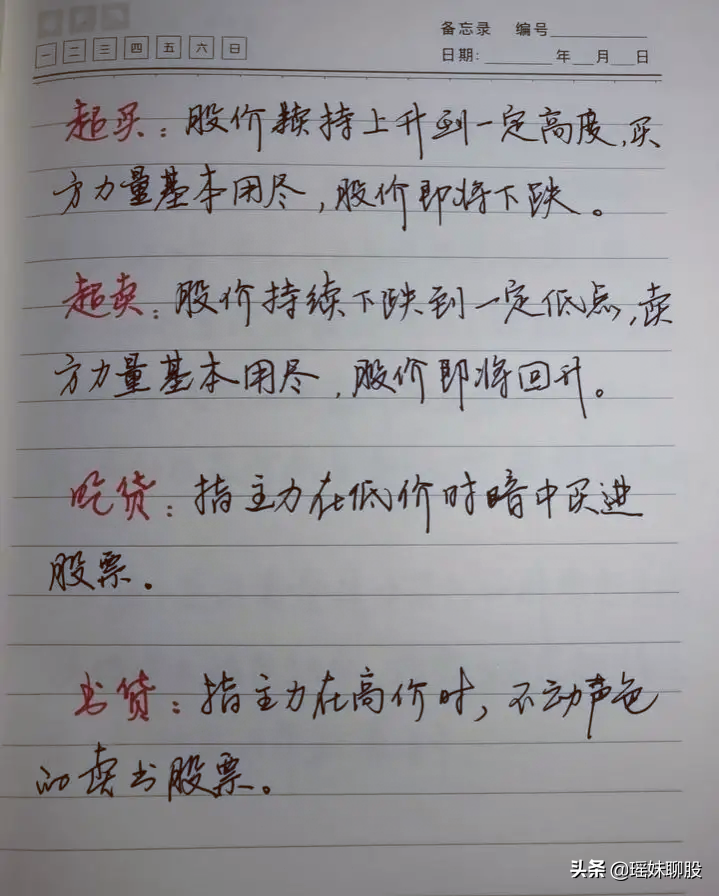 备忘录 编号
一 二 三 四 五 六 日 日期: 年 月 日
超买：股价续持上升到一定高度，买
方力量基本用尽，股价即将下跌。
超卖：股价持续下跌到一定低点，卖
方力量基本用尽，股价即将回升。
吃货：指主力在低价时暗中买进
股票。
出货：指主力在高价时，不动声色
的卖出股票。
头条 @瑶妹聊股